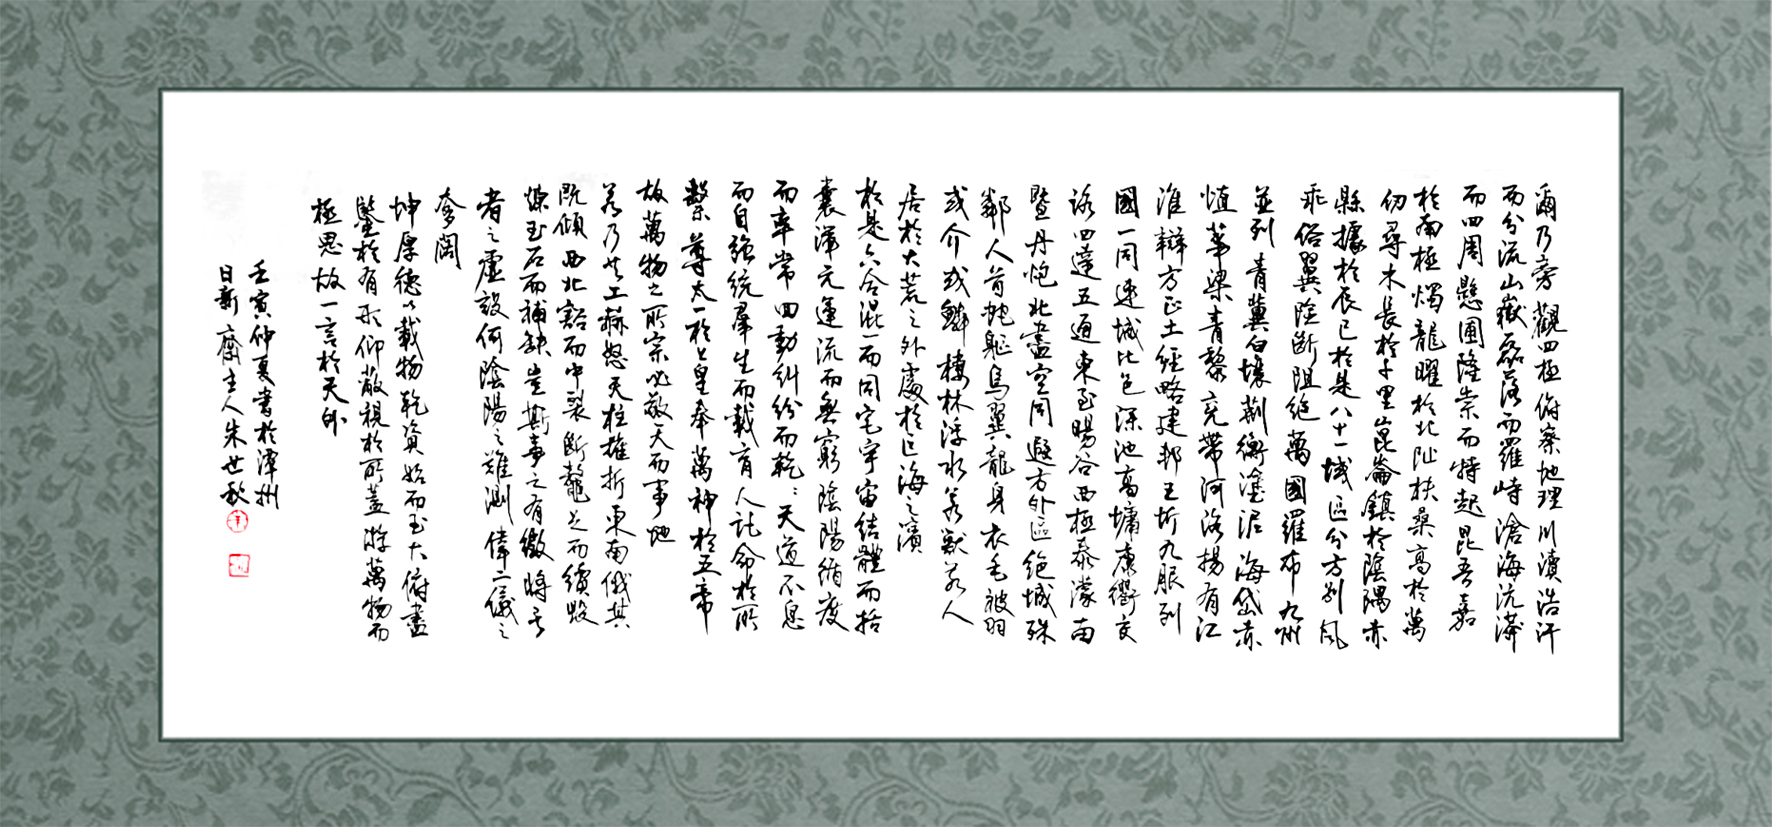 爾乃旁觀四極俯察地理川瀆浩汗
而分流山嶽磊落而羅峙滄海沆漭
而四周懸圃隆崇而特起昆吾嘉
於南極燭龍曜於北阯扶桑高於萬
仞尋木長於千里崑崙鎮於陰隅赤
縣據於辰巳於是八十一域區分方別風
乖俗異險斷阻絕萬國羅布九州
並列青冀白壤荊衡塗泥海岱赤
埴華梁青黎兗帶河洛揚有江
淮辯方正土經略建邦王圻九服列
國一同連城比邑深池高墉康衢交
路四達五通東至暘谷西極泰濛南
暨丹炮北盡空同遐方外區絕域殊
鄰人首蛇軀鳥翼龍身衣毛被羽
或介或鱗棲林浮水若獸若人
居於大荒之外處於巨海之濱
於是六合混一而同宅宇宙結體而括
囊渾元運流而無窮陰陽循度
而率常回動糾紛而乾〻天道不息
而自強統羣生而載育人託命於所
繫尊太一於上皇奉萬神於五帝
故萬物之所宗必敬天而事地
若乃共工赫怒天柱摧折東南俄其
既傾西北豁而中裂斷鼇足而續毀
煉玉石而補缺豈斯事之有徵將言
者之虛設何陰陽之難測偉二儀之
夸闊
坤厚德以載物乾資始而至大俯盡
鑒於有形仰蔽視於所蓋游萬物而
極思故一言於天外
壬寅仲夏書於潭州
日新齋主人朱世秋